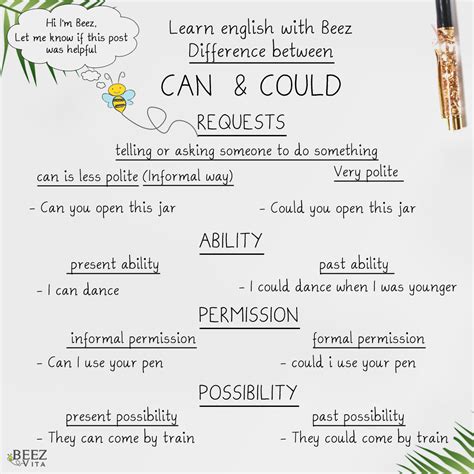 Hi I'm Beez,
Let me know if this post
was helpful
Learn english with Beez
Difference between
CAN & COULD
REQUESTS
telling or asking someone to do something
can is less polite (Informal way)
Very polite
- Can you open this jar
- Could you open this jar
ABILITY
present ability
past ability
- I can dance
- I could dance when I was younger
PERMISSION
informal permission
formal permission
- Can I use your pen
- could i use your pen
POSSIBILITY
present possibility
past possibility
- They can come by train
- They could come by train
BEEZ
VITA